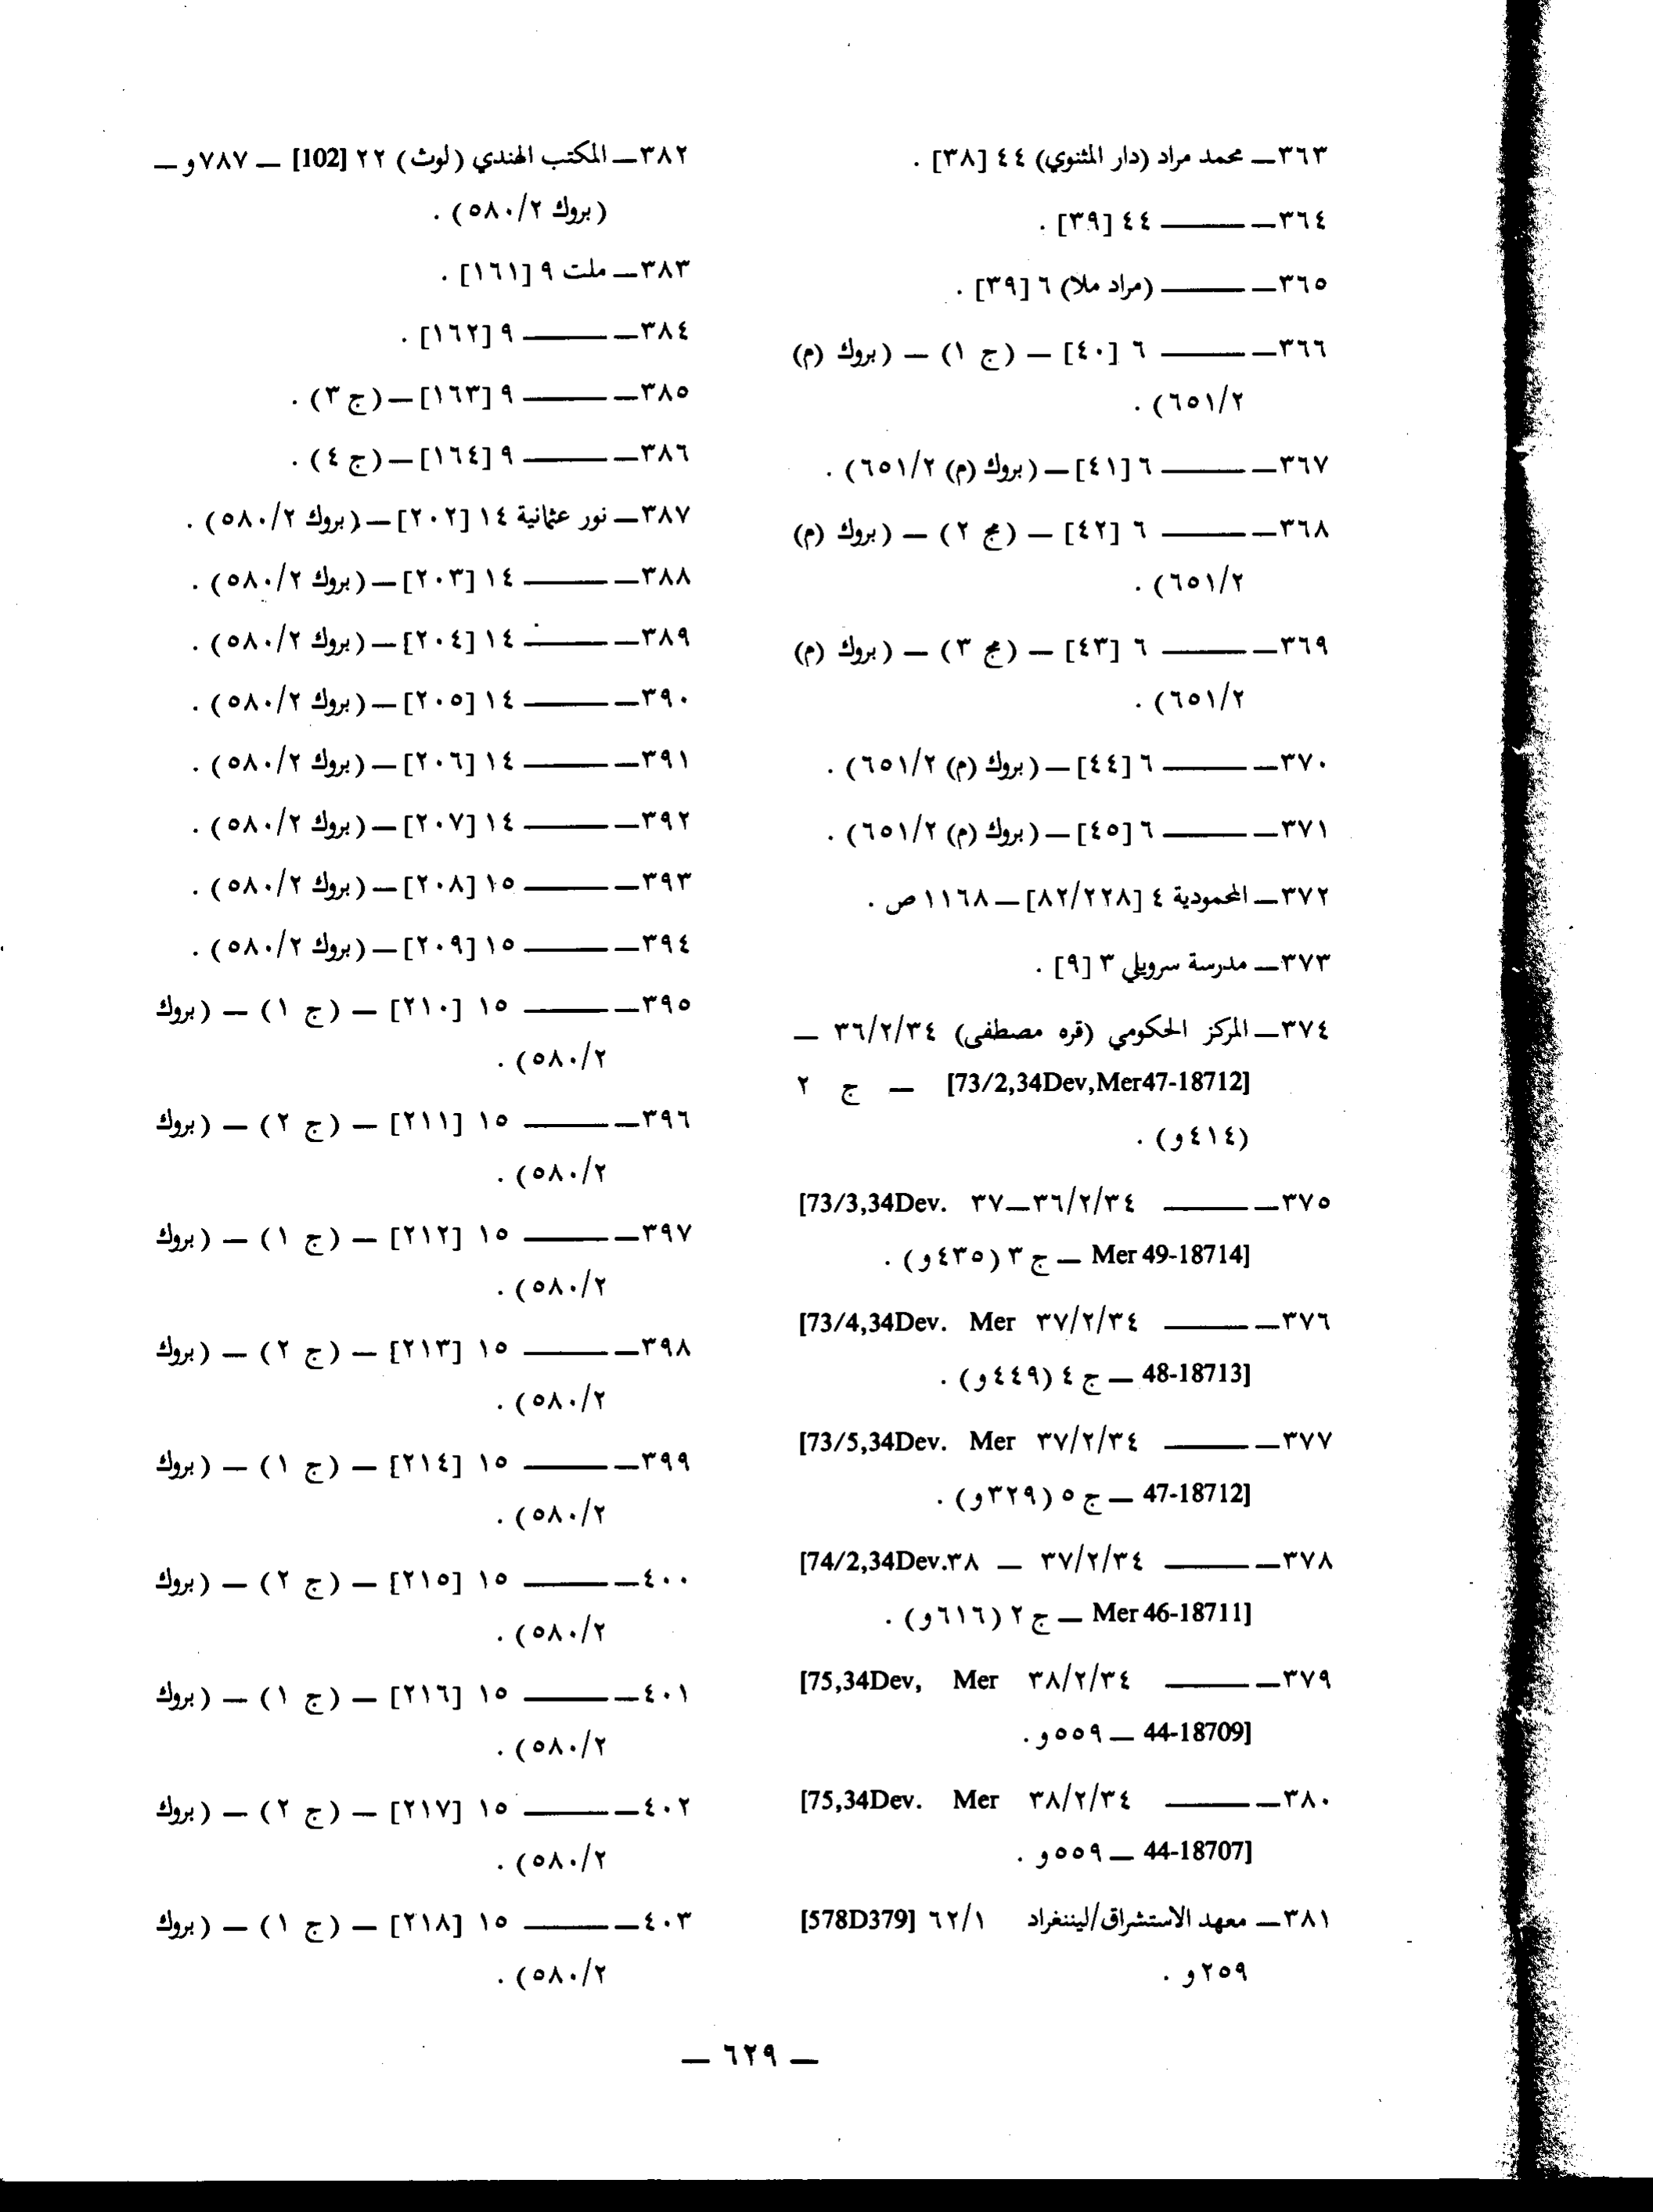 ٣٦٣ــ محمد مراد (دار المثنوي) ٤٤ [٣٨] .
٣٦٤ــ ـــــــــ ٤٤ [٣٩] .
٣٦٥ــ ـــــــــ (مراد ملا) ٦ [٣٩] .
٣٦٦ــ ـــــــــ ٦ [٤٠] ــ (ج ١) ــ (بروك (م)
٦٥١/٢) .
٣٦٧ــ ـــــــــ ٦ [٤١] ــ (بروك (م) ٦٥١/٢) .
٣٦٨ــ ـــــــــ ٦ [٤٢] ــ (مج ٢) ــ (بروك (م)
٦٥١/٢) .
٣٦٩ــ ـــــــــ ٦ [٤٣] ــ (مج ٣) ــ (بروك (م)
٦٥١/٢) .
٣٧٠ــ ـــــــــ ٦ [٤٤] ــ (بروك (م) ٦٥١/٢) .
٣٧١ــ ـــــــــ ٦ [٤٥] ــ (بروك (م) ٦٥١/٢) .
٣٧٢ــ المحمودية ٤ [٨٢/٢٢٨] ــ ١١٦٨ ص .
٣٧٣ــ مدرسة سرويلي ٣ [٩] .
٣٧٤ــ المركز الحكومي (قره مصطفى) ٣٦/٢/٣٤ ــ
[73/2,34Dev,Mer47-18712] ــ ج ٢
(٤١٤و) .
٣٧٥ــ ـــــــــ ٣٦/٢/٣٤ــ٣٧ [73/3,34Dev.
Mer 49-18714] ــ ج ٣ (٤٣٥و) .
٣٧٦ــ ـــــــــ ٣٧/٢/٣٤ [73/4,34Dev. Mer
48-18713] ــ ج ٤ (٤٤٩و) .
٣٧٧ــ ـــــــــ ٣٧/٢/٣٤ [73/5,34Dev. Mer
47-18712] ــ ج ٥ (٣٢٩و) .
٣٧٨ــ ـــــــــ ٣٧/٢/٣٤ ــ ٣٨ [74/2,34Dev.
Mer 46-18711] ــ ج ٢ (٦١٦و) .
٣٧٩ــ ـــــــــ ٣٨/٢/٣٤ [75,34Dev, Mer
44-18709] ــ ٥٥٩و .
٣٨٠ــ ـــــــــ ٣٨/٢/٣٤ [75,34Dev. Mer
44-18707] ــ ٥٥٩و .
٣٨١ــ معهد الاستشراق/ليننغراد ٦٢/١ [578D379]
٢٥٩و .
٣٨٢ــ المكتب الهندي (لوث) ٢٢ [102] ــ ٧٨٧و ــ
(بروك ٥٨٠/٢) .
٣٨٣ــ ملت ٩ [١٦١] .
٣٨٤ــ ـــــــــ ٩ [١٦٢] .
٣٨٥ــ ـــــــــ ٩ [١٦٣] ــ (ج ٣) .
٣٨٦ــ ـــــــــ ٩ [١٦٤] ــ (ج ٤) .
٣٨٧ــ نور عثمانية ١٤ [٢٠٢] ــ (بروك ٥٨٠/٢) .
٣٨٨ــ ـــــــــ ١٤ [٢٠٣] ــ (بروك ٥٨٠/٢) .
٣٨٩ــ ـــــــــ ١٤ [٢٠٤] ــ (بروك ٥٨٠/٢) .
٣٩٠ــ ـــــــــ ١٤ [٢٠٥] ــ (بروك ٥٨٠/٢) .
٣٩١ــ ـــــــــ ١٤ [٢٠٦] ــ (بروك ٥٨٠/٢) .
٣٩٢ــ ـــــــــ ١٤ [٢٠٧] ــ (بروك ٥٨٠/٢) .
٣٩٣ــ ـــــــــ ١٥ [٢٠٨] ــ (بروك ٥٨٠/٢) .
٣٩٤ــ ـــــــــ ١٥ [٢٠٩] ــ (بروك ٥٨٠/٢) .
٣٩٥ــ ـــــــــ ١٥ [٢١٠] ــ (ج ١) ــ (بروك
٥٨٠/٢) .
٣٩٦ــ ـــــــــ ١٥ [٢١١] ــ (ج ٢) ــ (بروك
٥٨٠/٢) .
٣٩٧ــ ـــــــــ ١٥ [٢١٢] ــ (ج ١) ــ (بروك
٥٨٠/٢) .
٣٩٨ــ ـــــــــ ١٥ [٢١٣] ــ (ج ٢) ــ (بروك
٥٨٠/٢) .
٣٩٩ــ ـــــــــ ١٥ [٢١٤] ــ (ج ١) ــ (بروك
٥٨٠/٢) .
٤٠٠ــ ـــــــــ ١٥ [٢١٥] ــ (ج ٢) ــ (بروك
٥٨٠/٢) .
٤٠١ــ ـــــــــ ١٥ [٢١٦] ــ (ج ١) ــ (بروك
٥٨٠/٢) .
٤٠٢ــ ـــــــــ ١٥ [٢١٧] ــ (ج ٢) ــ (بروك
٥٨٠/٢) .
٤٠٣ــ ـــــــــ ١٥ [٢١٨] ــ (ج ١) ــ (بروك
٥٨٠/٢) .
ــ ٦٢٩ ــ